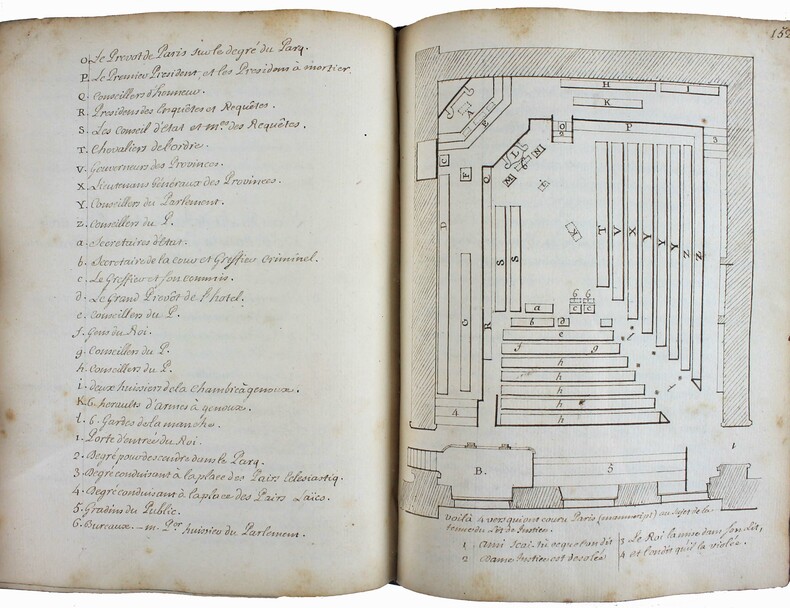 O. Le Prevot de Paris sur le degré du Parq.
P. Le Premier President, et les Presidens à mortier.
Q. Conseillers d'honneur.
R. Presidens des Enquêtes et Requêtes.
S. Les Conseil d'état et mes des Requêtes.
T. Chevaliers de l'ordre.
V. Gouverneurs des Provinces.
X. Lieutenans Généraux des Provinces.
Y. Conseillers du Parlement.
Z. Conseillers du P.
a. Secretaires d'état.
b. Secretaire de la cour et Greffier Criminel.
c. Le Greffier et son commis.
d. Le Grand Prevôt de l'hotel.
e. Conseillers du P.
f. Gens du Roi.
g. Conseillers du P.
h. Conseillers du P.
i. deux huissiers de la chambre à genoux.
K. 6. herauts d'armes à genoux.
l. 6. Gardes de la manche.
1. Porte d'entrée du Roi.
2. Degré pour descendre dans le Parq.
3. Degré conduisant à la place des Pairs Eclesiastiq.
4. Degré conduisant à la place des Pairs Laïcs.
5. Gradins du Public.
6. Bureaux. — m. Per huissier du Parlement.
H
I
K
A
E
O
2
P
3
C
F
L
6
M
N
Q
i
K
D
G
S S
T V X Y Y Y Z Z
R
6 6
a
c c
b d
e
f g
h
h
h
h
h
l
l
4
B.
5
1
voilà 4 vers qui ont couru Paris (manuscript) au sujet de la
tenue du Lit de Justice:
1 Ami Scai-tu ce que l'on dit
2 Dame Justice est desolée
3 Le Roi la mise dans son lit,
4 et l'on dit qu'il la violée.